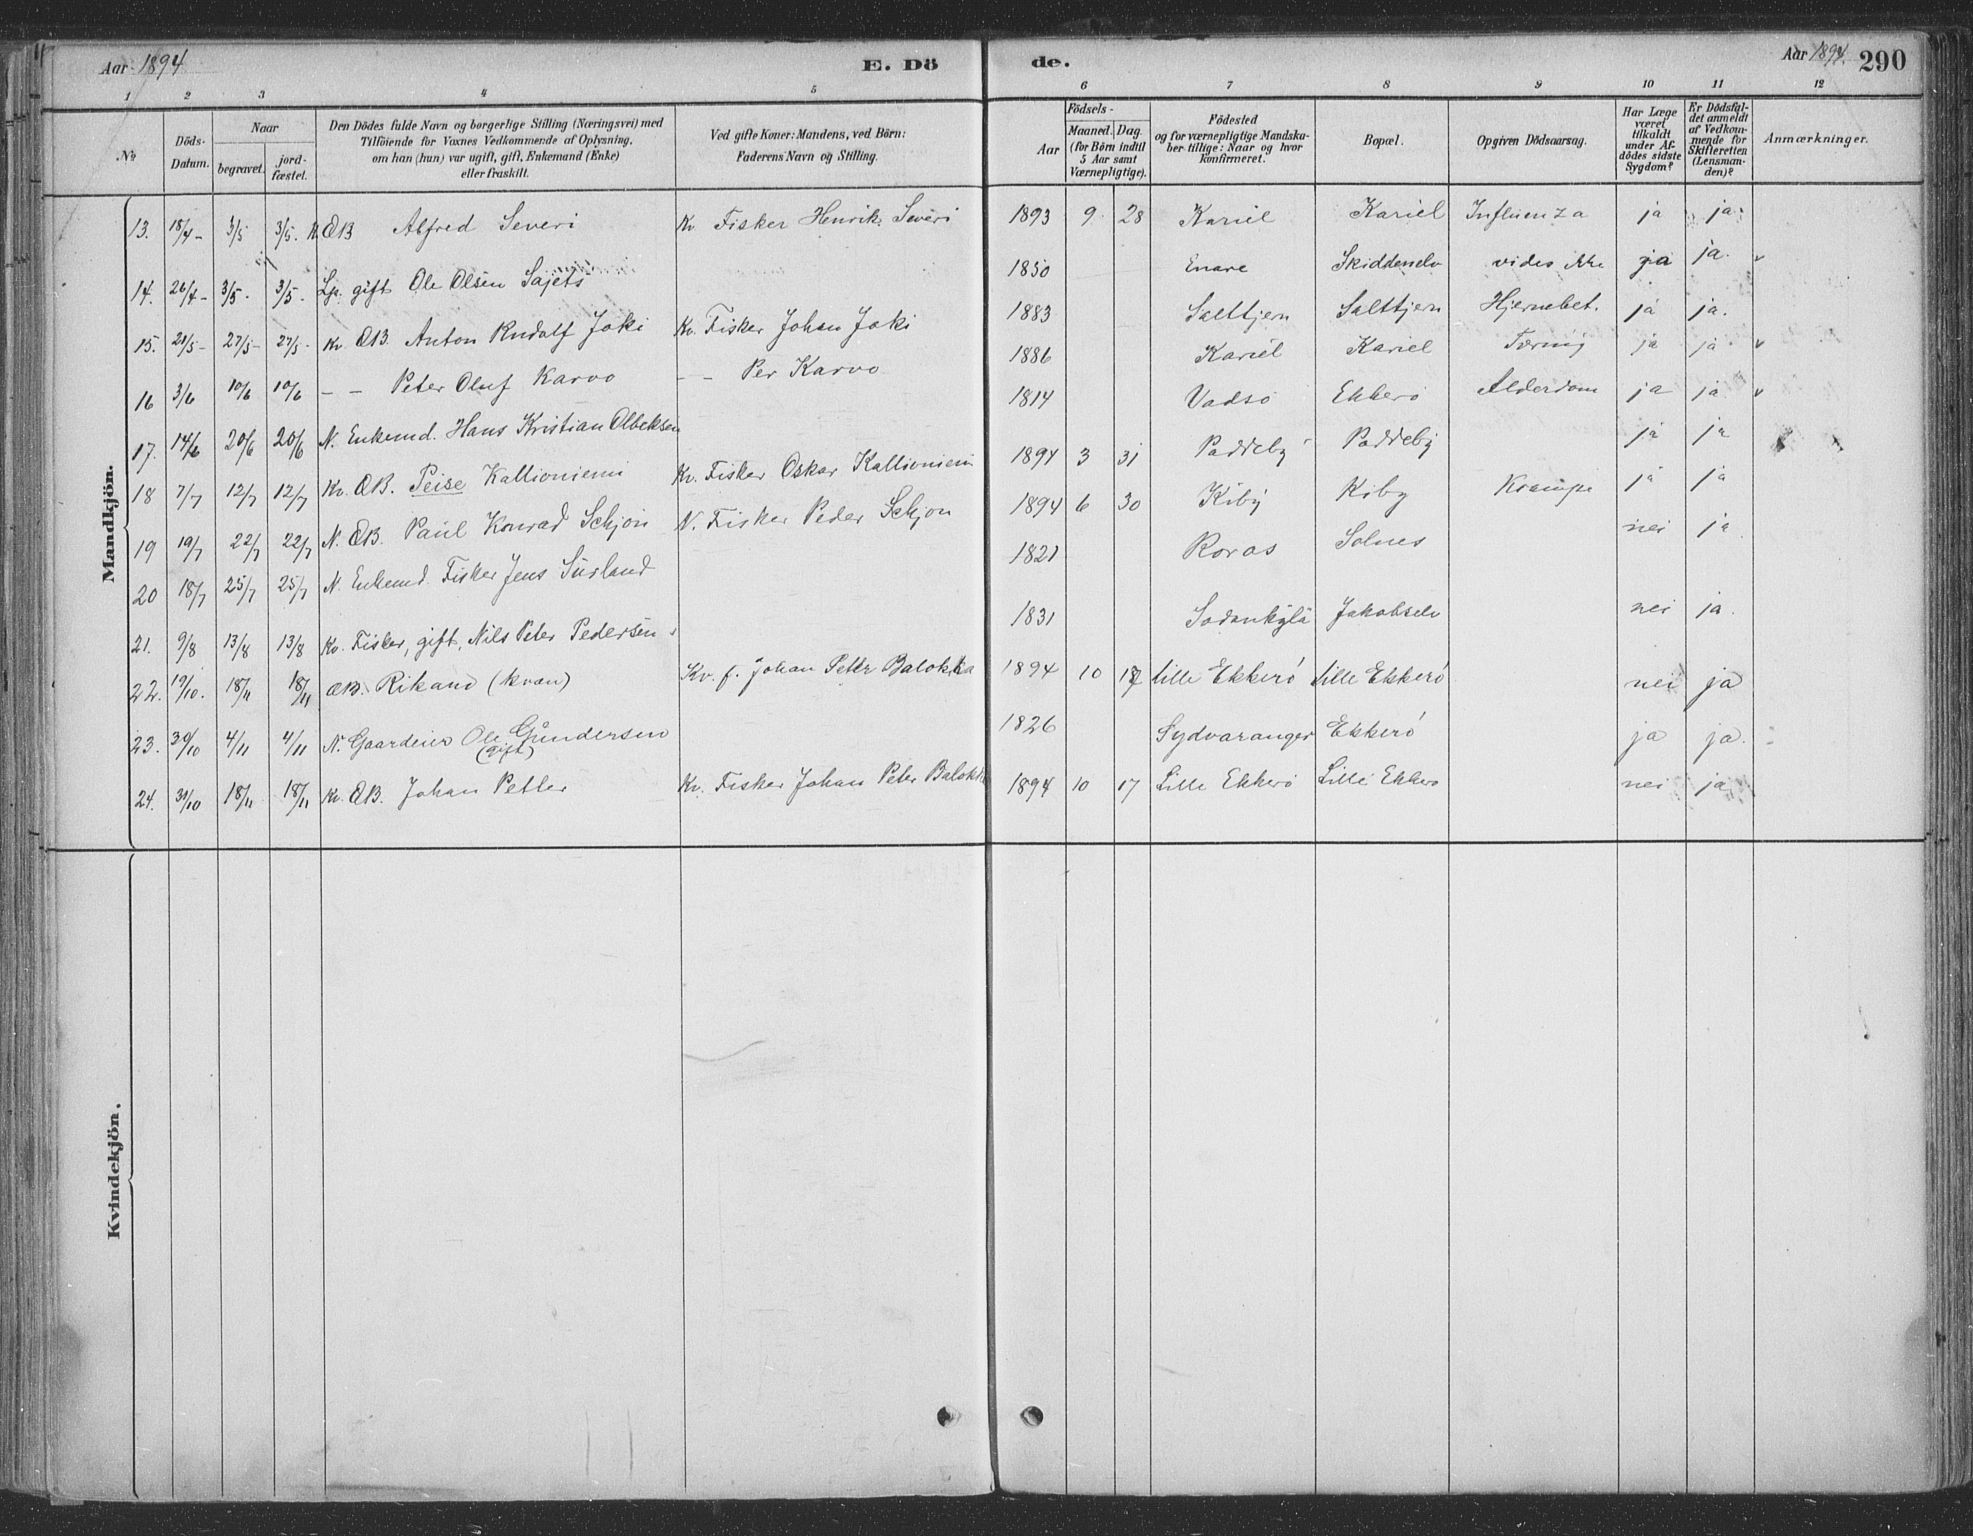 Aar 1894 E. Dö de. Aar 1894. 290
1 2 3 4 5 6 7 8 9 10 11 12
No
Döds-Datum.
Naar
begravet.
jord-fæstet.
Den Dödes fulde Navn og borgerlige Stilling (Næringsvei) med
Tilföiende for Voxnes Vedkommende af Oplysning,
om han (hun) var ugift, gift, Enkemand (Enke)
eller fraskilt.
Ved gifte Koner: Mandens, ved Börn:
Faderens Navn og Stilling.
Födsels-
Aar
Maaned. Dag.
(for Börn indtil
5 Aar samt
Værnepligtige).
Födested
og for værnepligtige Mandska-
ber tillige: Naar og hvor
konfirmeret.
Bopæl.
Opgiven Dödsaarsag.
Har Læge
været
tilkaldt
under Af-
dödes sidste
Sygdom?
Er Dödsfal-
det anmeldt
af Vedkom-
mende for
Skifteretten
(Lensman-
den)?
Anmærkninger.
Mandkjön.
13. 18/4 - 3/5 3/5. ÆB Alfred Severi Kv. Fisker Henrik Severi 1893 9 28 Kariel Kariel Influenza ja ja
14. 26/4 - 3/5 - 3/5 - Lp. gift Ole Olsen Sajets 1850 Enare Skiddenelv vides ikke ja ja. "
15. 21/5 - 27/5 - 27/5 - Kv. ÆB. Anton Rudolf Joki Kv. Fisker Johan Joki 1883 Salttjern Salttjern Hjernebet. ja ja.
16 3/6 10/6 10/6 - - Peter Oluf Karvo - - Per Karvo 1886 Kariel Kariel Tæring ja ja "
17. 14/6 20/6 20/6 N. Enkemd. Hans Kristian Olbeksen 1814 Vadsö Ekkerö Alderdom ja ja "
18 7/7 12/7 12/7 Kv. ÆB. Peise Kallioniemi Kv. Fisker Oskar Kallioniemi 1894 3 31 Paddeby Paddeby ja ja
19 19/7 22/7 22/7 N. ÆB. Paul Konrad Schjön N. Fisker Peder Schjön 1894 6 30 Kiby Kiby Krampe ja ja
20 18/7 25/7 25/7 N. Enkemd. Fisker Jens Surland 1821 Roraas Solnes nei ja
21. 9/8 13/8 13/8 Kv. Fisker, gift, Nils Peter Pedersen 1831 Sodankylä Jakobselv nei ja.
22. 19/10. 18/11 18/11 ÆB. Rikand (kvæn) Kv. f. Johan Petter Balokka 1894 10 17 Lille Ekkerö Lille Ekkerö nei ja
23. 30/10 4/11 4/11 N. Gaardeier Ole Gundersen (gift) 1826 Sydvaranger Ekkerö ja ja.
24. 31/10 18/11 18/11 Kv. ÆB. Johan Petter Kv. Fisker Johan Peter Balokka 1894 10 17 Lille Ekkerö Lille Ekkerö nei ja
Kvindekjön.